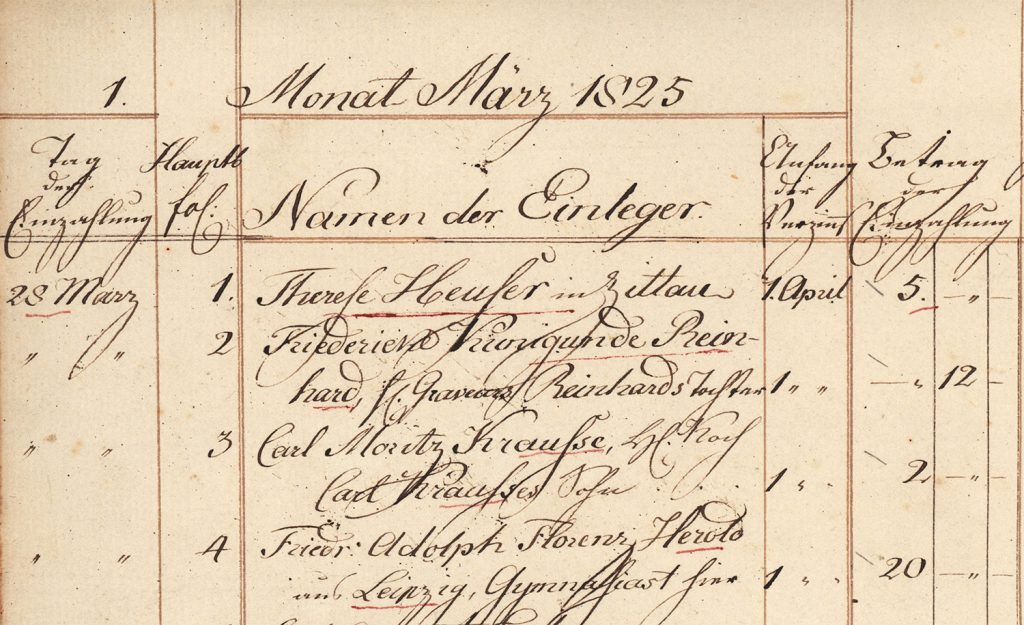 1. Monat März 1825
Tag der Einzahlung
Hauptb fol:
Namen der Einleger.
Anfang der Verzins
Betrag der Einzahlung
28 März 1. Therese Heuser in Zittau 1. April 5. — " —
" " 2 Friederike Kunigunde Rein-
hard, Graveurs Reinhards Tochter 1 " " — " 12 —
" " 3 Carl Moritz Krausse, Koch
Carl Krausses Sohn 1 " . 2 — " —
" " 4 Friedr: Adolph Florenz Herold
aus Leipzig, Gymnasiast hier 1 " . 20 — " —